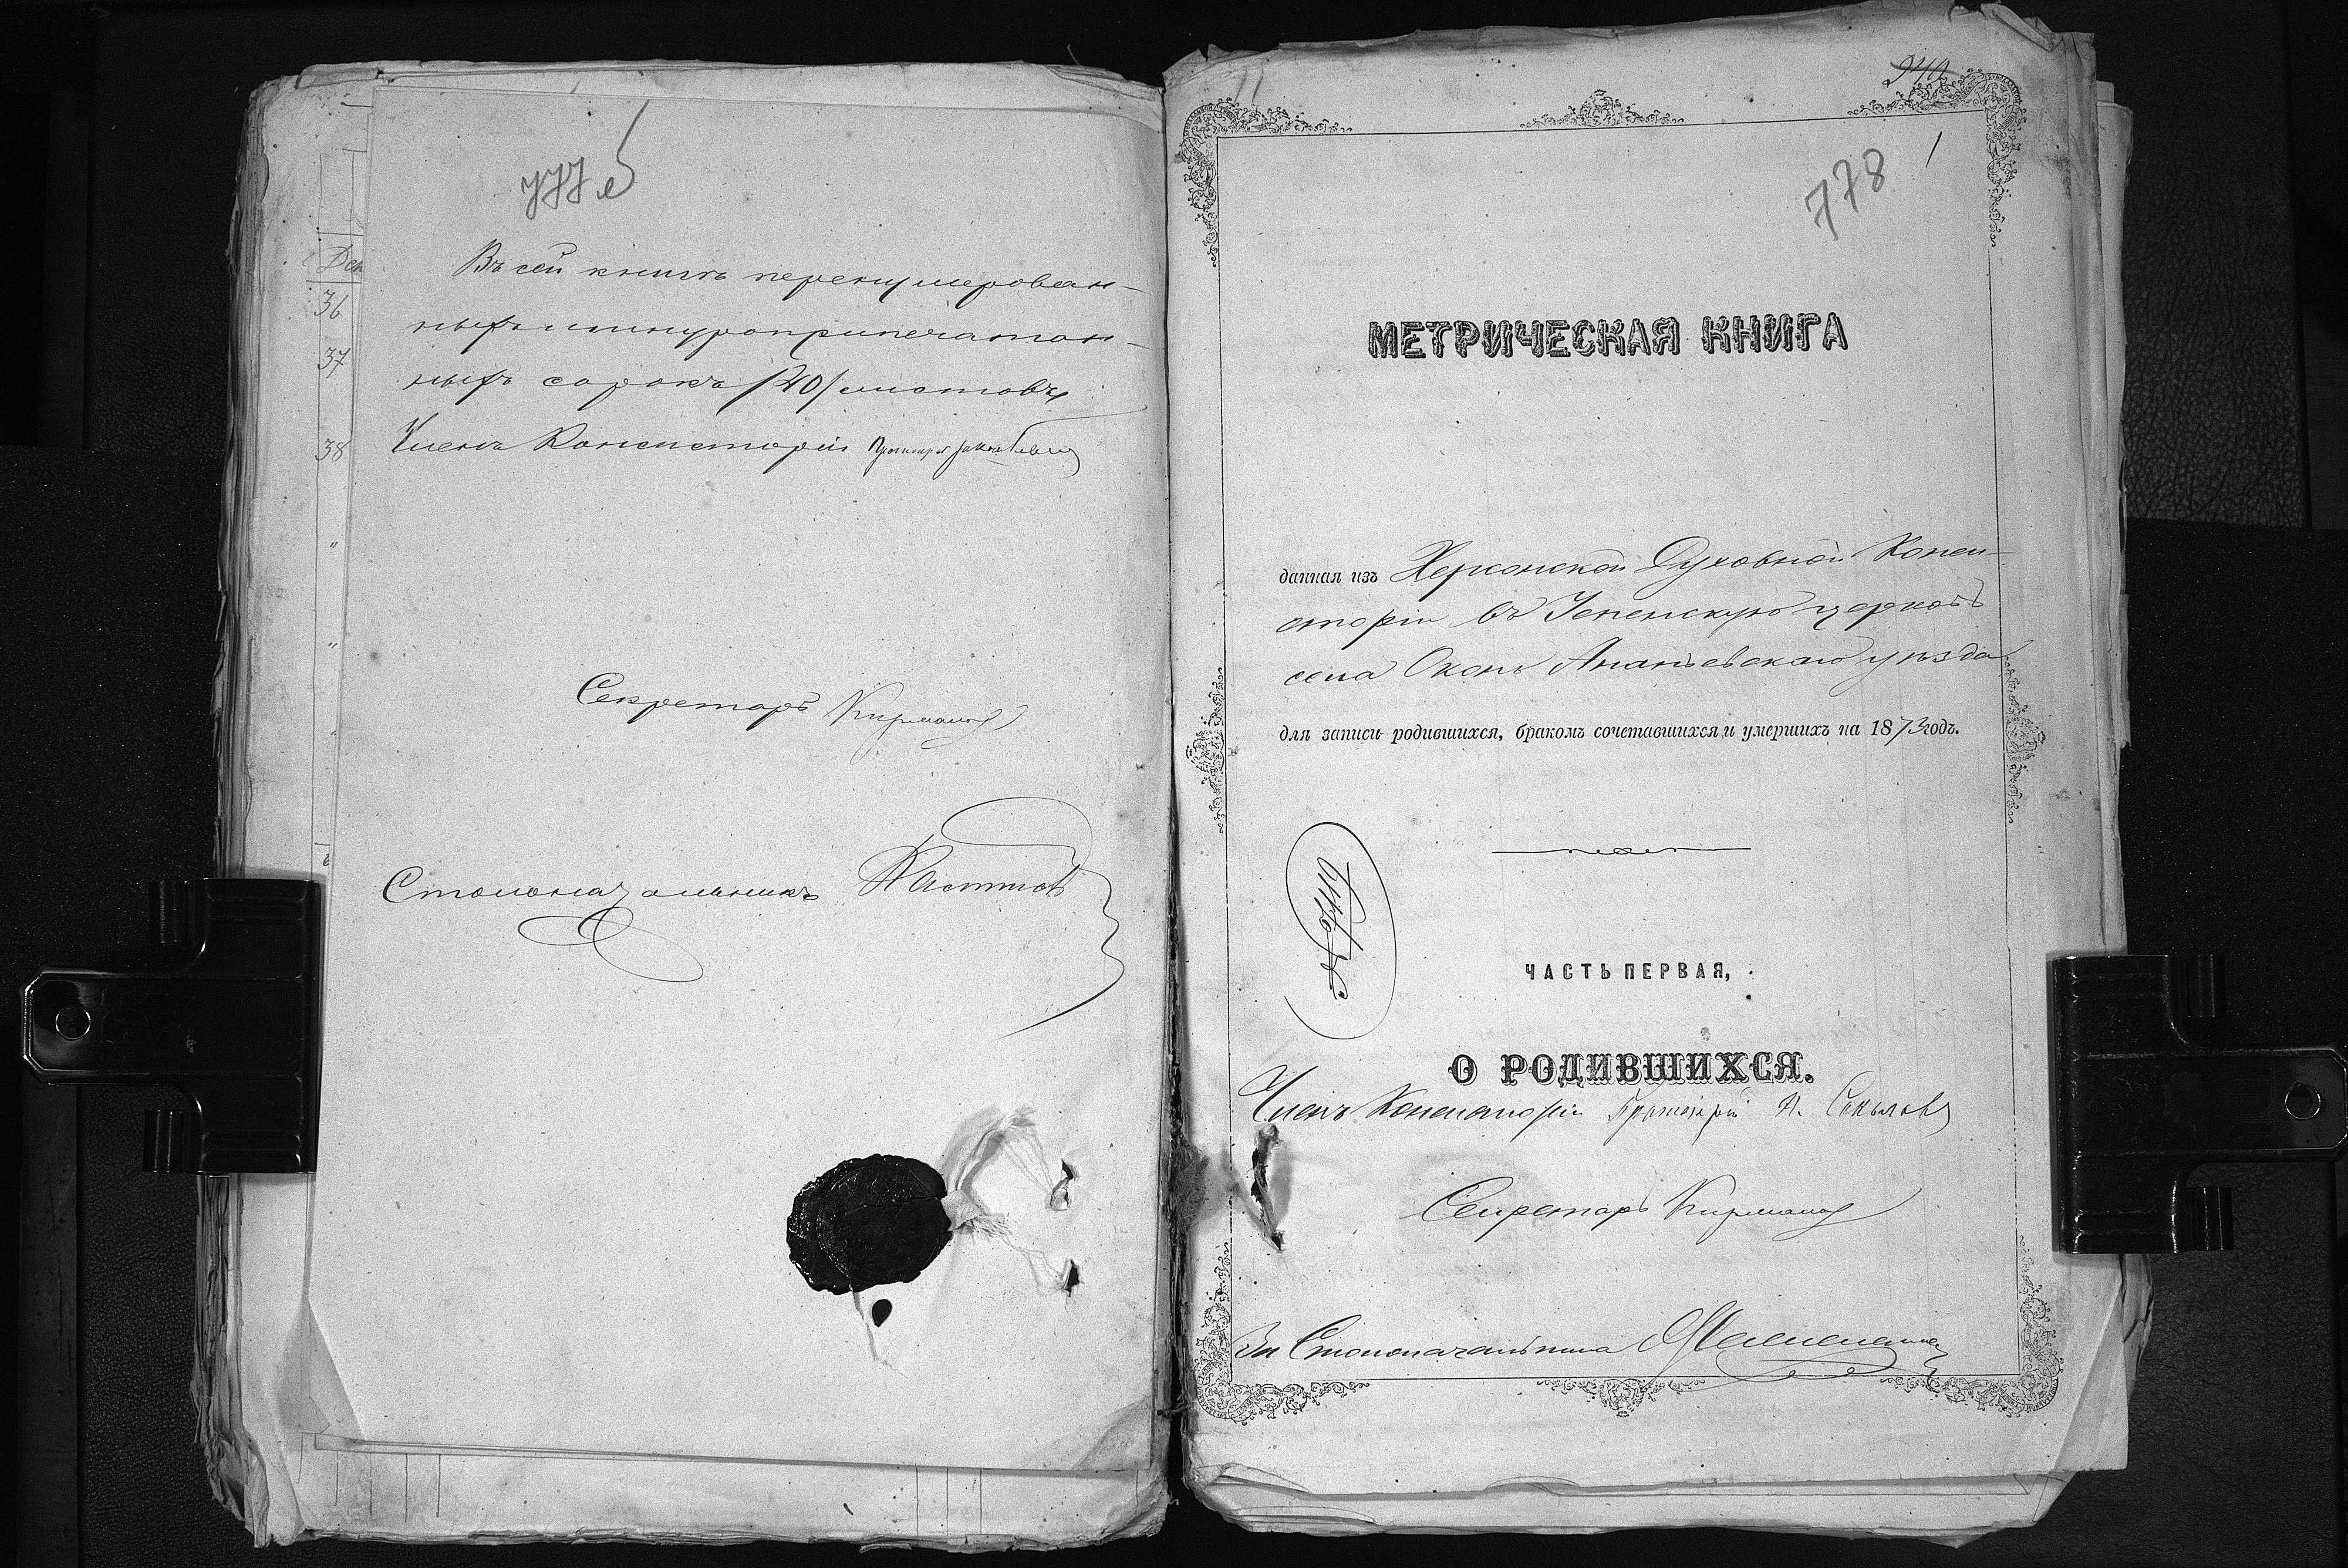 777 об
Въ сей книгѣ перенумерован-
ныхъ шнуроприпечатан-
ныхъ сорокъ /40/ листовъ
Членъ Консисторіи Протоіерей
Секретарь
Столоначальникъ
Ден
36
37
38
"
"
240
1
778
МЕТРИЧЕСКАЯ КНИГА
данная изъ Херсонской Духовной Конси-
сторіи въ Успенскую церковь
села Оконъ Ананьевскаго уѣзда
для записи родившихся, бракомъ сочетавшихся и умершихъ на 1873 годъ.
ЧАСТЬ ПЕРВАЯ,
О РОДИВШИХСЯ.
Членъ Консисторіи Протоіерей А. Соколовъ
Секретарь
За Столоначальника